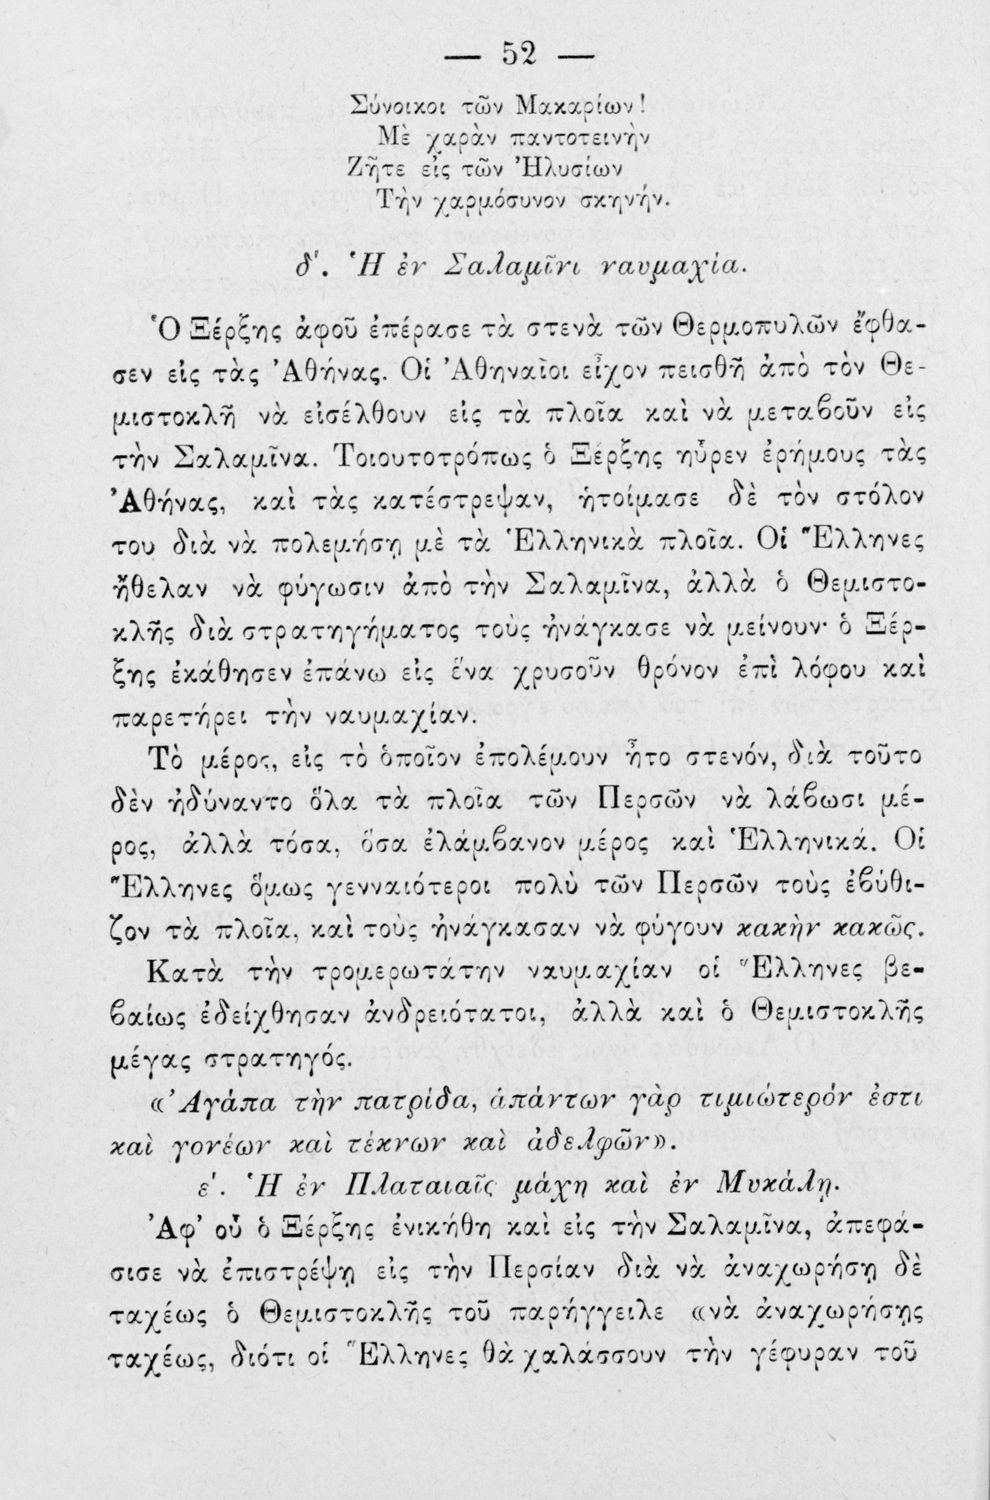 — 52 —
Σύνοικοι τῶν Μακαρίων!
Μὲ χαρὰν παντοτεινὴν
Ζῆτε εἰς τῶν Ἠλυσίων
Τὴν χαρμόσυνον σκηνήν.
δ'. Ἡ ἐν Σαλαμῖνι ναυμαχία.
Ὁ Ξέρξης ἀφοῦ ἐπέρασε τὰ στενὰ τῶν Θερμοπυλῶν ἔφθα-
σεν εἰς τὰς Ἀθήνας. Οἱ Ἀθηναῖοι εἶχον πεισθῆ ἀπὸ τὸν Θε-
μιστοκλῆ νὰ εἰσέλθουν εἰς τὰ πλοῖα καὶ νὰ μεταβοῦν εἰς
τὴν Σαλαμῖνα. Τοιουτοτρόπως ὁ Ξέρξης ηὗρεν ἐρήμους τὰς
Ἀθήνας, καὶ τὰς κατέστρεψαν, ἡτοίμασε δὲ τὸν στόλον
του διὰ νὰ πολεμήσῃ μὲ τὰ Ἑλληνικὰ πλοῖα. Οἱ Ἕλληνες
ἤθελαν νὰ φύγωσιν ἀπὸ τὴν Σαλαμῖνα, ἀλλὰ ὁ Θεμιστο-
κλῆς διὰ στρατηγήματος τοὺς ἠνάγκασε νὰ μείνουν· ὁ Ξέρ-
ξης ἐκάθησεν ἐπάνω εἰς ἕνα χρυσοῦν θρόνον ἐπὶ λόφου καὶ
παρετήρει τὴν ναυμαχίαν.
Τὸ μέρος, εἰς τὸ ὁποῖον ἐπολέμουν ἦτο στενόν, διὰ τοῦτο
δὲν ἠδύναντο ὅλα τὰ πλοῖα τῶν Περσῶν νὰ λάβωσι μέ-
ρος, ἀλλὰ τόσα, ὅσα ἐλάμβανον μέρος καὶ Ἑλληνικά. Οἱ
Ἕλληνες ὅμως γενναιότεροι πολὺ τῶν Περσῶν τοὺς ἐβύθι-
ζον τὰ πλοῖα, καὶ τοὺς ἠνάγκασαν νὰ φύγουν κακὴν κακῶς.
Κατὰ τὴν τρομερωτάτην ναυμαχίαν οἱ Ἕλληνες βε-
βαίως ἐδείχθησαν ἀνδρειότατοι, ἀλλὰ καὶ ὁ Θεμιστοκλῆς
μέγας στρατηγός.
«Ἀγάπα τὴν πατρίδα, ἁπάντων γὰρ τιμιώτερόν ἐστι
καὶ γονέων καὶ τέκνων καὶ ἀδελφῶν».
ε'. Ἡ ἐν Πλαταιαῖς μάχη καὶ ἐν Μυκάλῃ.
Ἀφ' οὗ ὁ Ξέρξης ἐνικήθη καὶ εἰς τὴν Σαλαμῖνα, ἀπεφά-
σισε νὰ ἐπιστρέψῃ εἰς τὴν Περσίαν διὰ νὰ ἀναχωρήσῃ δὲ
ταχέως ὁ Θεμιστοκλῆς τοῦ παρήγγειλε «νὰ ἀναχωρήσῃς
ταχέως, διότι οἱ Ἕλληνες θὰ χαλάσσουν τὴν γέφυραν τοῦ